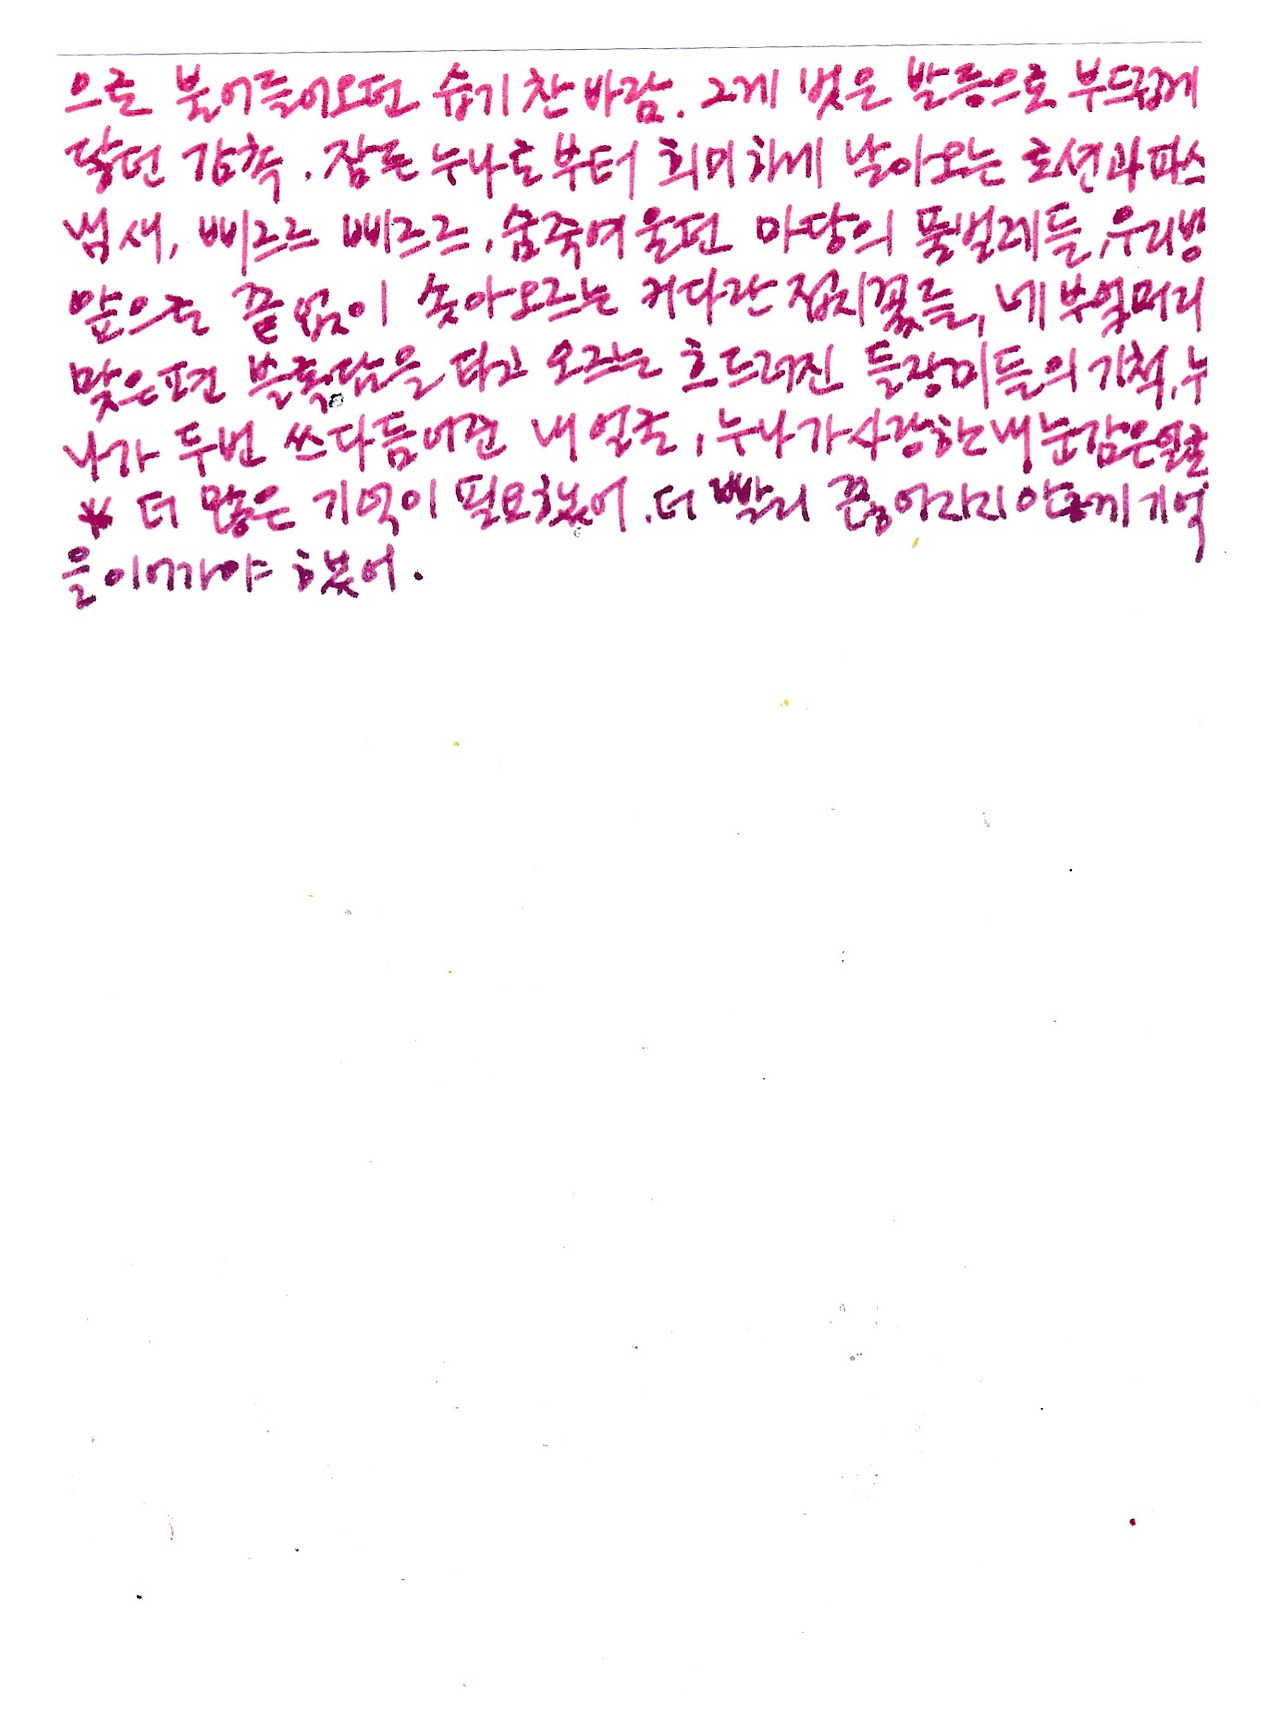 으로 불어들어오던 습기 찬 바람. 그게 벗은 발등으로 부드럽게
닿던 감촉. 잠든 누나로부터 희미하게 날아오는 로션과 파스
냄새, 삐르르 삐르르, 숨죽여 울던 마당의 풀벌레들, 우리 방
앞으로 끝없이 솟아오르는 커다란 접시꽃들, 네 부엌머리
맞은편 블록담을 타고 오르는 흐드러진 들장미들의 기척, 누
나가 두번 쓰다듬어준 내 얼굴, 누나가 사랑한 내 눈 감은 얼굴
* 더 많은 기억이 필요했어. 더 빨리 끊어지지 않게 기억
을 이어가야 했어.